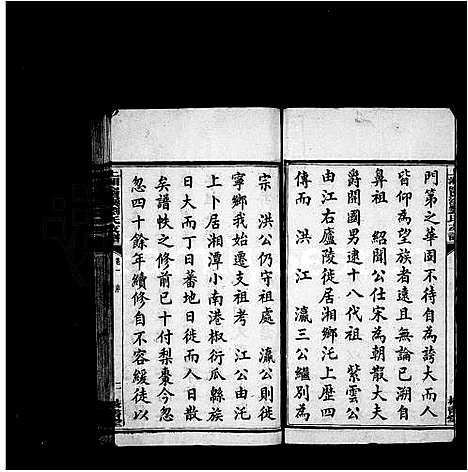 門第之華固不待自為誇大而人
皆仰為望族者遠且無論已我朝
鼻祖 紹聞公仕宋為朝散大夫
爵開國男逮十八代祖 紫雲公
由江右廬陵徙居湘鄉沱上歷四
傳洪 江 瀛三公繼別為
宗 洪公仍守祖處 瀛公則徙
寧鄉我始遷支祖考 江公由沱
上卜居湘潭小南港椒衍瓜緜族
日大而丁日蕃地日徙而人日散
矣譜帙之修前已十付梨棗今忽
忽四十餘年續修自不容緩徒以